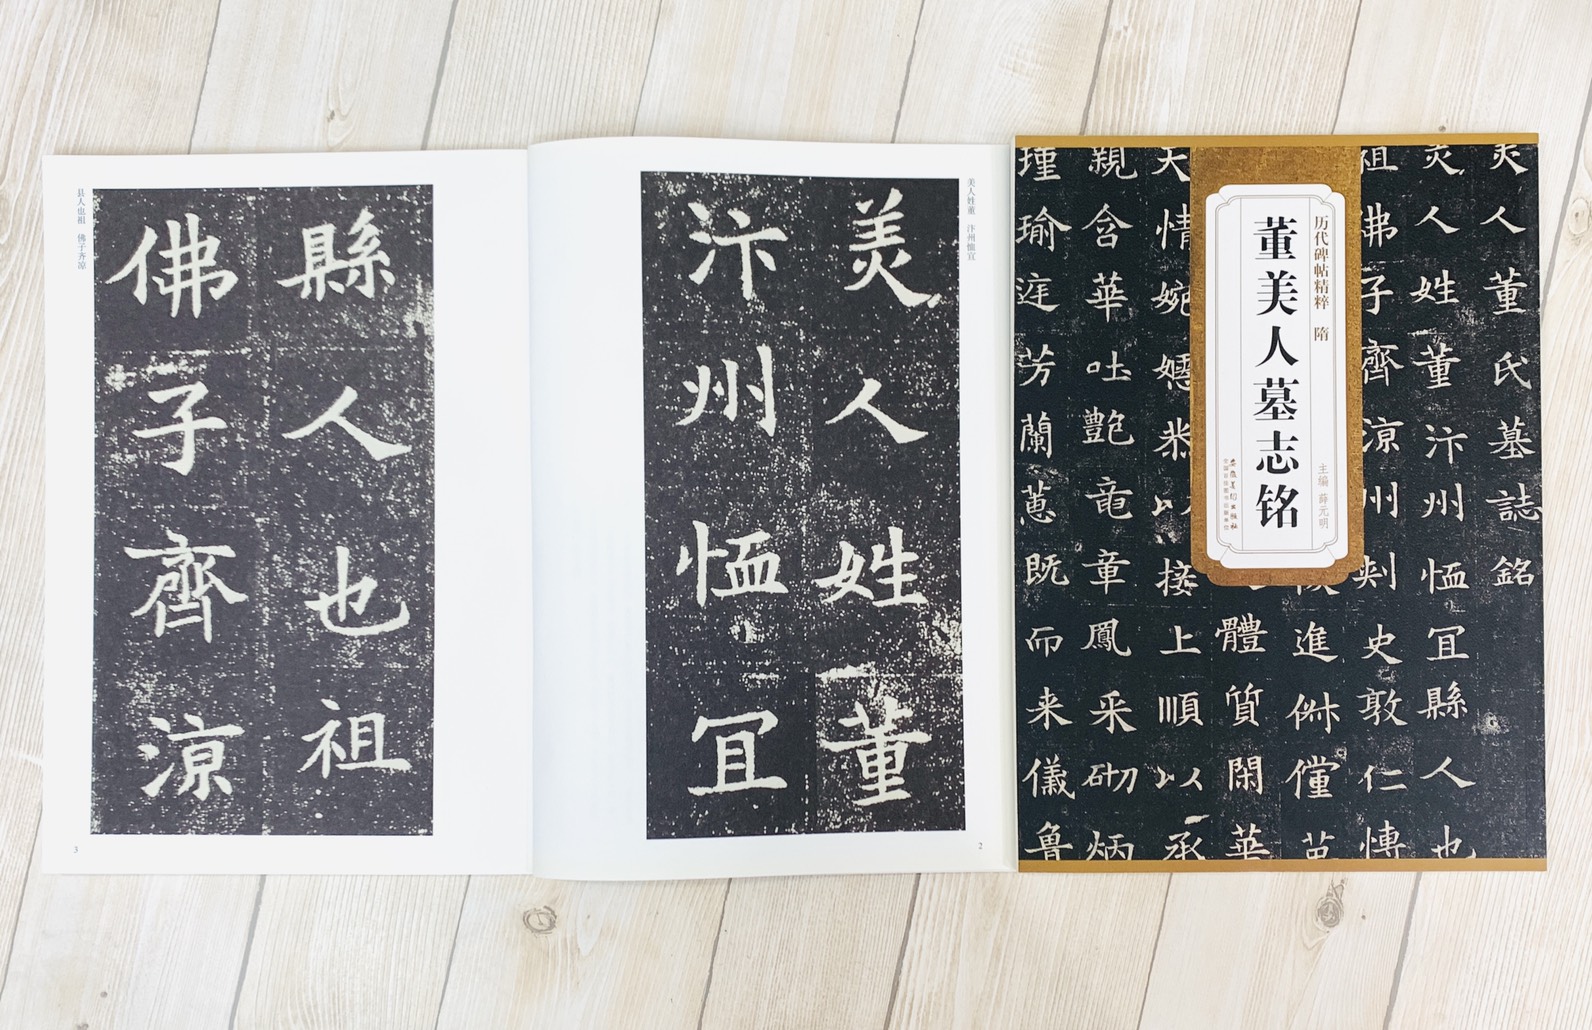 美人董氏墓誌銘
美人姓董汴州恤宜縣人也
祖佛子齊涼州刾史敦仁愽
進俶儻
體質閑華
天情婉嬺恭以接上順以承
親含華吐艷竜章鳳采砌炳
瑾瑜庭芳蘭蕙既而来儀魯
历代碑帖精粹 隋
主编 薛元明
董美人墓志铭
安徽美术出版社
全国百佳图书出版单位
美人姓董 汴州恤宜
美人姓董
汴州恤宜
2
縣人也祖
佛子齊涼
县人也祖 佛子齐凉
3